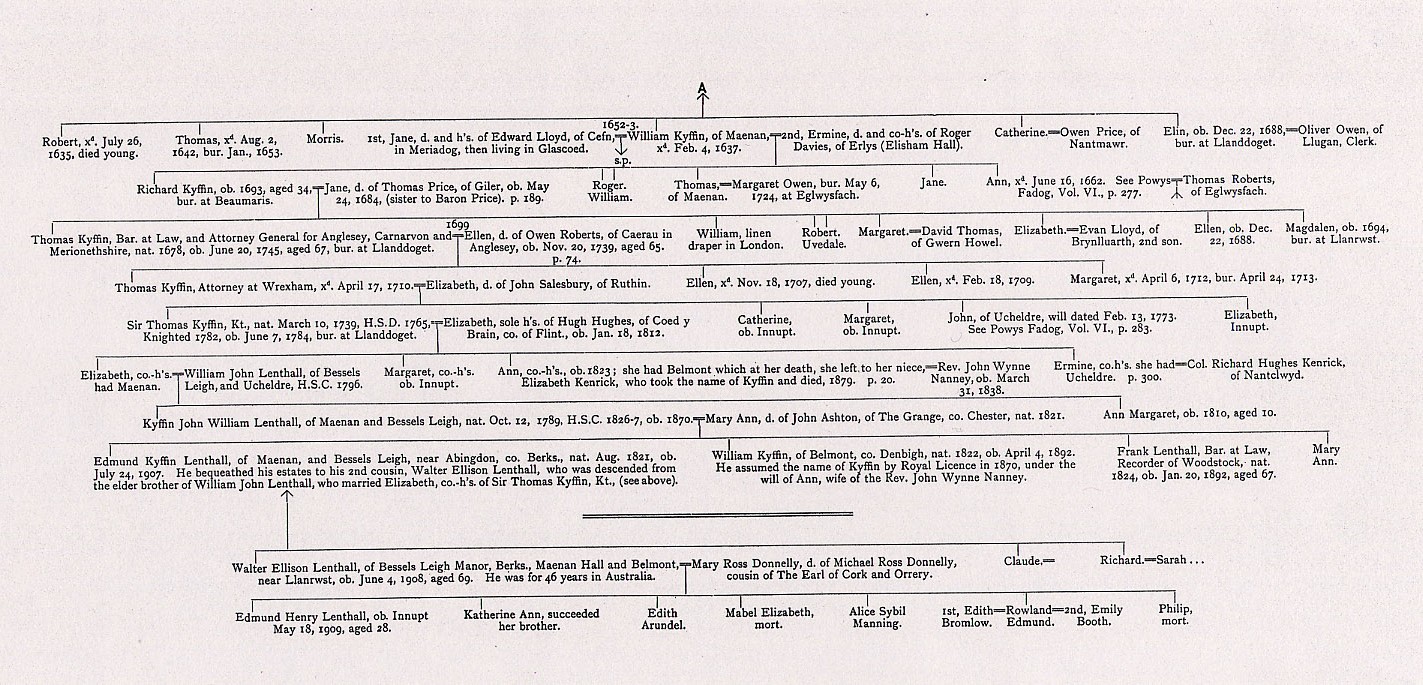 A
1652-3.
Robert, xd. July 26,
1635, died young.
Thomas, xd. Aug. 2,
1642, bur. Jan., 1653.
Morris.
1st, Jane, d. and h's. of Edward Lloyd, of Cefn,
in Meriadog, then living in Glascoed.
s.p.
William Kyffin, of Maenan,
xd. Feb. 4, 1637.
2nd, Ermine, d. and co-h's. of Roger
Davies, of Erlys (Elisham Hall).
Catherine.=Owen Price, of
Nantmawr.
Elin, ob. Dec. 22, 1688,=Oliver Owen, of
bur. at Llanddoget. Llugan, Clerk.
Richard Kyffin, ob. 1693, aged 34,
bur. at Beaumaris.
Jane, d. of Thomas Price, of Giler, ob. May
24, 1684, (sister to Baron Price). p. 189.
Roger.
William.
Thomas,=Margaret Owen, bur. May 6,
of Maenan. 1724, at Eglwysfach.
Jane.
Ann, xd. June 16, 1662. See Powys
Fadog, Vol. VI., p. 277.
Thomas Roberts,
of Eglwysfach.
1699
Thomas Kyffin, Bar. at Law, and Attorney General for Anglesey, Carnarvon and
Merionethshire, nat. 1678, ob. June 20, 1745, aged 67, bur. at Llanddoget.
Ellen, d. of Owen Roberts, of Caerau in
Anglesey, ob. Nov. 20, 1739, aged 65.
p. 74.
William, linen
draper in London.
Robert.
Uvedale.
Margaret.=David Thomas,
of Gwern Howel.
Elizabeth.=Evan Lloyd, of
Brynlluarth, 2nd son.
Ellen, ob. Dec.
22, 1688.
Magdalen, ob. 1694,
bur. at Llanrwst.
Thomas Kyffin, Attorney at Wrexham, xd. April 17, 1710.=Elizabeth, d. of John Salesbury, of Ruthin.
Ellen, xd. Nov. 18, 1707, died young.
Ellen, xd. Feb. 18, 1709.
Margaret, xd. April 6, 1712, bur. April 24, 1713.
Sir Thomas Kyffin, Kt., nat. March 10, 1739, H.S.D. 1765,
Knighted 1782, ob. June 7, 1784, bur. at Llanddoget.
Elizabeth, sole h's. of Hugh Hughes, of Coed y
Brain, co. of Flint., ob. Jan. 18, 1812.
Catherine,
ob. Innupt.
Margaret,
ob. Innupt.
John, of Ucheldre, will dated Feb. 13, 1773.
See Powys Fadog, Vol. VI., p. 283.
Elizabeth,
Innupt.
Elizabeth, co.-h's.
had Maenan.
William John Lenthall, of Bessels
Leigh, and Ucheldre, H.S.C. 1796.
Margaret, co.-h's.
ob. Innupt.
Ann, co.-h's., ob. 1823; she had Belmont which at her death, she left to her niece,
Elizabeth Kenrick, who took the name of Kyffin and died, 1879. p. 20.
Rev. John Wynne
Nanney, ob. March
31, 1838.
Ermine, co.h's. she had=Col. Richard Hughes Kenrick,
Ucheldre. p. 300. of Nantclwyd.
Kyffin John William Lenthall, of Maenan and Bessels Leigh, nat. Oct. 12, 1789, H.S.C. 1826-7, ob. 1870.=Mary Ann, d. of John Ashton, of The Grange, co. Chester, nat. 1821.
Ann Margaret, ob. 1810, aged 10.
Edmund Kyffin Lenthall, of Maenan, and Bessels Leigh, near Abingdon, co. Berks., nat. Aug. 1821, ob.
July 24, 1907. He bequeathed his estates to his 2nd cousin, Walter Ellison Lenthall, who was descended from
the elder brother of William John Lenthall, who married Elizabeth, co.-h's. of Sir Thomas Kyffin, Kt., (see above).
William Kyffin, of Belmont, co. Denbigh, nat. 1822, ob. April 4, 1892.
He assumed the name of Kyffin by Royal Licence in 1870, under the
will of Ann, wife of the Rev. John Wynne Nanney.
Frank Lenthall, Bar. at Law,
Recorder of Woodstock, nat.
1824, ob. Jan. 20, 1892, aged 67.
Mary
Ann.
Walter Ellison Lenthall, of Bessels Leigh Manor, Berks., Maenan Hall and Belmont,
near Llanrwst, ob. June 4, 1908, aged 69. He was for 46 years in Australia.
Mary Ross Donnelly, d. of Michael Ross Donnelly,
cousin of The Earl of Cork and Orrery.
Claude.=
Richard.=Sarah ...
Edmund Henry Lenthall, ob. Innupt
May 18, 1909, aged 28.
Katherine Ann, succeeded
her brother.
Edith
Arundel.
Mabel Elizabeth,
mort.
Alice Sybil
Manning.
1st, Edith=Rowland=2nd, Emily
Bromlow. Edmund. Booth.
Philip,
mort.